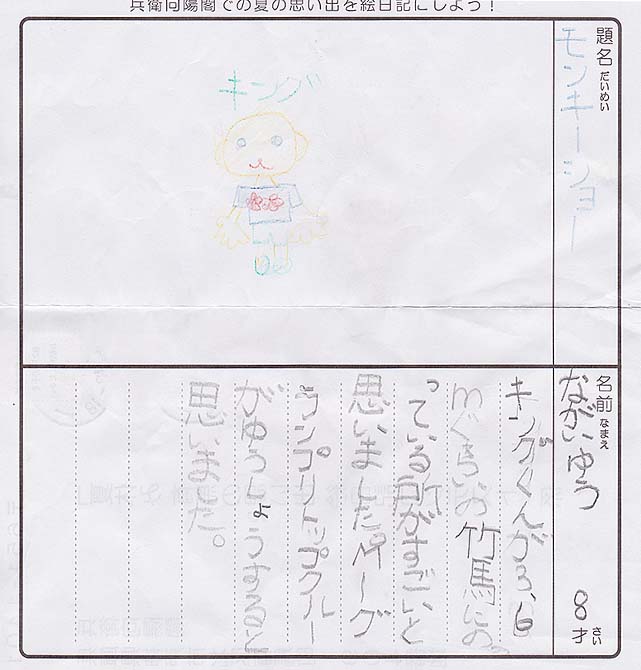 兵衛向陽閣での夏の思い出を絵日記にしよう！
題名 だいめい
モンキーショー
キング
名前 なまえ
ながいゆう 8才 さい
キングくんが3,6
mぐらいの竹馬にの
っている所がすごいと
思いました
ランプリトップクルー
がゆうしょうすると
思いまた。